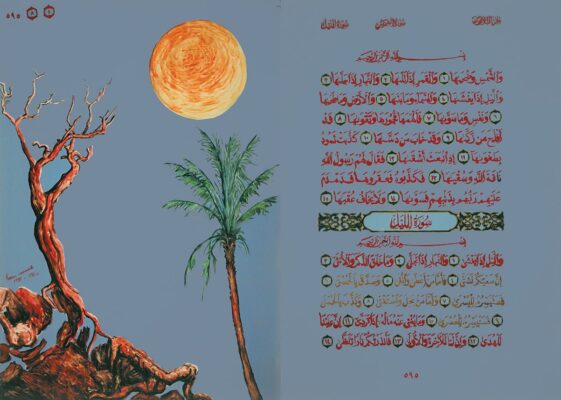 ٥٩٥
سورة الليل
سورة الشمس
الجزء الثلاثون
بِسْمِ اللَّهِ الرَّحْمَٰنِ الرَّحِيمِ
وَالشَّمْسِ وَضُحَىٰهَا ١ وَالْقَمَرِ إِذَا تَلَىٰهَا ٢ وَالنَّهَارِ إِذَا جَلَّىٰهَا ٣
وَاللَّيْلِ إِذَا يَغْشَىٰهَا ٤ وَالسَّمَاءِ وَمَا بَنَىٰهَا ٥ وَالْأَرْضِ وَمَا طَحَىٰهَا
٦ وَنَفْسٍ وَمَا سَوَّىٰهَا ٧ فَأَلْهَمَهَا فُجُورَهَا وَتَقْوَىٰهَا ٨ قَدْ
أَفْلَحَ مَنْ زَكَّىٰهَا ٩ وَقَدْ خَابَ مَنْ دَسَّىٰهَا ١٠ كَذَّبَتْ ثَمُودُ
بِطَغْوَىٰهَا ١١ إِذِ انْبَعَثَ أَشْقَىٰهَا ١٢ فَقَالَ لَهُمْ رَسُولُ اللَّهِ
نَاقَةَ اللَّهِ وَسُقْيَىٰهَا ١٣ فَكَذَّبُوهُ فَعَقَرُوهَا فَدَمْدَمَ
عَلَيْهِمْ رَبُّهُمْ بِذَنْبِهِمْ فَسَوَّىٰهَا ١٤ وَلَا يَخَافُ عُقْبَىٰهَا ١٥
سُورَةُ اللَّيْلِ
بِسْمِ اللَّهِ الرَّحْمَٰنِ الرَّحِيمِ
وَاللَّيْلِ إِذَا يَغْشَىٰ ١ وَالنَّهَارِ إِذَا تَجَلَّىٰ ٢ وَمَا خَلَقَ الذَّكَرَ وَالْأُنْثَىٰ ٣
إِنَّ سَعْيَكُمْ لَشَتَّىٰ ٤ فَأَمَّا مَنْ أَعْطَىٰ وَاتَّقَىٰ ٥ وَصَدَّقَ بِالْحُسْنَىٰ ٦
فَسَنُيَسِّرُهُ لِلْيُسْرَىٰ ٧ وَأَمَّا مَنْ بَخِلَ وَاسْتَغْنَىٰ ٨ وَكَذَّبَ بِالْحُسْنَىٰ
٩ فَسَنُيَسِّرُهُ لِلْعُسْرَىٰ ١٠ وَمَا يُغْنِي عَنْهُ مَالُهُ إِذَا تَرَدَّىٰ ١١ إِنَّ عَلَيْنَا
لَلْهُدَىٰ ١٢ وَإِنَّ لَنَا لَلْآخِرَةَ وَالْأُولَىٰ ١٣ فَأَنْذَرْتُكُمْ نَارًا تَلَظَّىٰ ١٤
٥٩٥